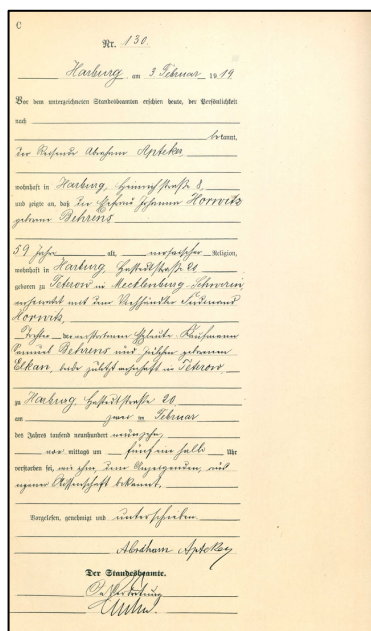 C
Nr. 130.
Harburg, am 3. Februar 1919
Vor dem unterzeichneten Standesbeamten erschien heute, der Persönlichkeit
nach
bekannt,
der Reisende Abraham Apteker
wohnhaft in Harburg, Heinrichstraße 8,
und zeigte an, daß die Ehefrau Johanna Horwitz
geborene Behrens
59 Jahre alt, mosaischer Religion,
wohnhaft in Harburg, Hastedtstraße 20
geboren zu Teterow in Mecklenburg-Schwerin
verheiratet mit dem Viehhändler Ferdinand
Horwitz,
Tochter der verstorbenen Eheleute Kaufmann
Samuel Behrens und geborenen
Elkan, beide zuletzt wohnhaft in Teterow
zu Harburg, Hastedtstraße 20,
am zwei ten Februar
des Jahres tausend neunhundert neunzehn,
vor mittags um fünf ein halb Uhr
verstorben sei, wie ihm, dem Anzeigenden, aus
eigener Wissenschaft bekannt.
Vorgelesen, genehmigt und unterschrieben.
Abraham Apteker
Der Standesbeamte.
In Vertretung